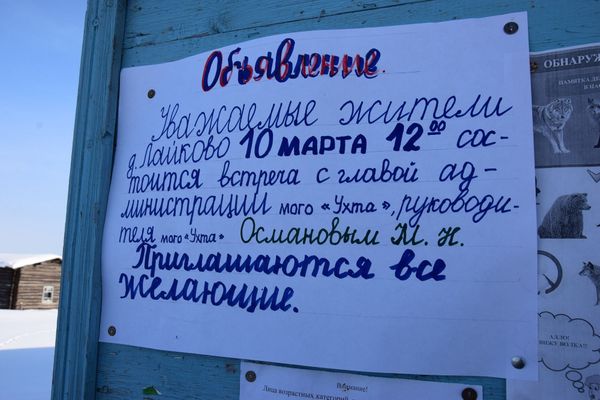 Объявление
Уважаемые жители
д. Лайково 10 МАРТА 12⁰⁰ сос-
тоится встреча с главой ад-
министрации МОГО «Ухта», руководи-
теля МОГО «Ухта» Османовым М. Н.
Приглашаются все
желающие.
ОБНАРУЖ
ПАМЯТКА
АЛЛО!
ВИЖУ ВОЛКА!!
Внимание!
Лица возрастных категорий